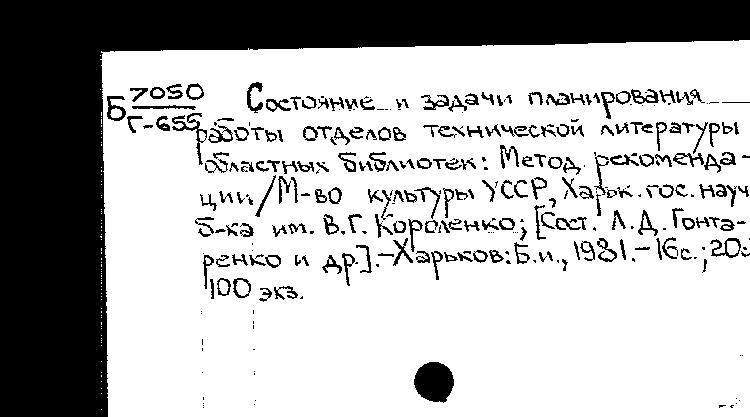 Б 7050
Г-655
Состояние и задачи планирования
работы отделов технической литературы
областных библиотек: Метод. рекоменда-
ции / М-во культуры УССР, Харьк. гос. науч.
б-ка им. В.Г. Короленко; [Сост. Л.Д. Гонта-
ренко и др.].-Харьков: Б.и., 1981.-16с.; 20с
100 экз.